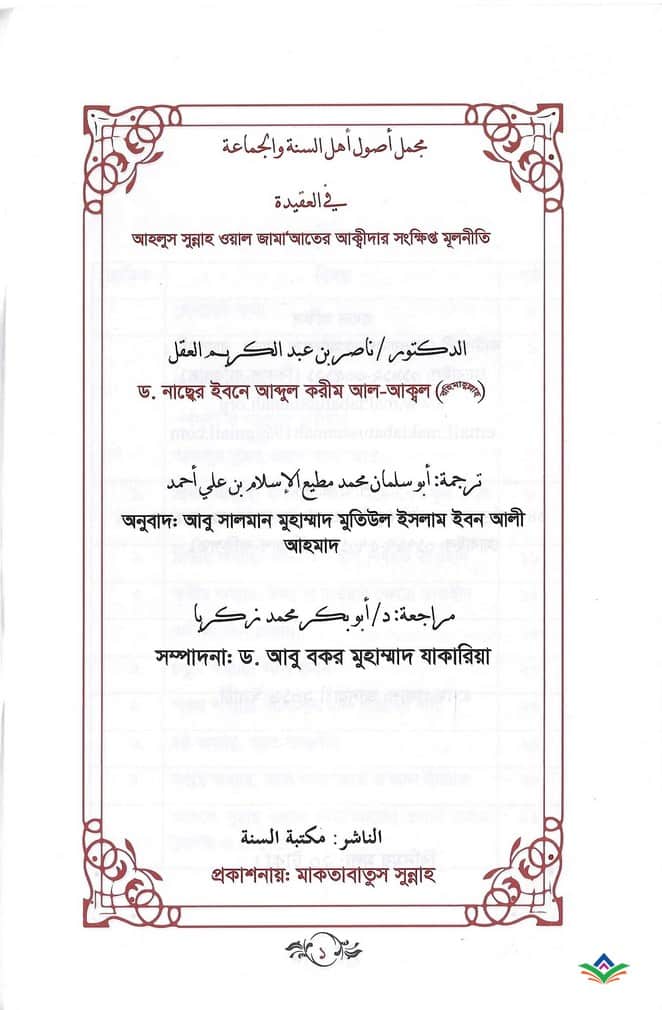 مجمل أصول أهل السنة والجماعة
في العقيدة
আহলুস সুন্নাহ ওয়াল জামা‘আতের আক্বীদার সংক্ষিপ্ত মূলনীতি
الدكتور/ناصر بن عبد الكريم العقل
ড. নাছের ইবনে আব্দুল করীম আল-আক্বল
ترجمة: أبو سلمان محمد مطيع الإسلام بن علي أحمد
অনুবাদ: আবু সালমান মুহাম্মাদ মুতিউল ইসলাম ইবন আলী
আহমাদ
مراجعة: د/أبو بكر محمد زكريا
সম্পাদনা: ড. আবু বকর মুহাম্মাদ যাকারিয়া
الناشر: مكتبة السنة
প্রকাশনায়: মাকতাবাতুস সুন্নাহ
১